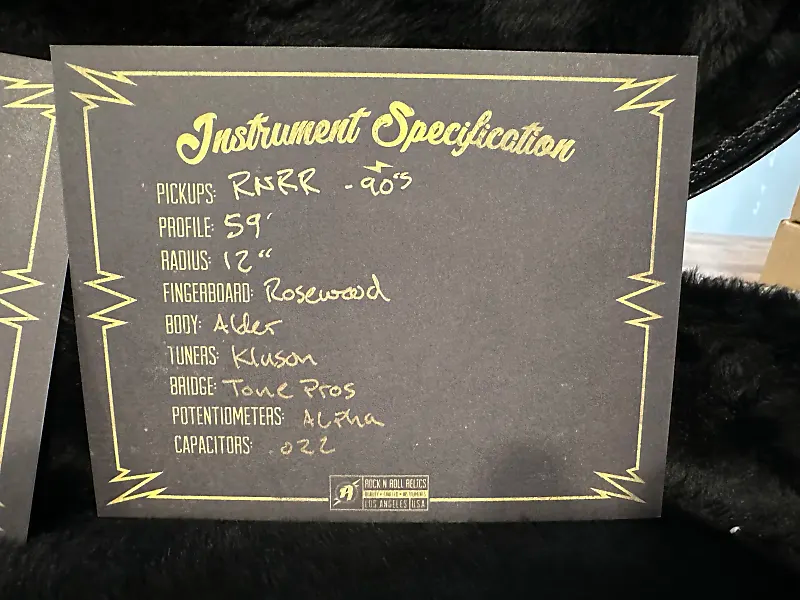 Instrument Specification
PICKUPS: RNRR - 90's
PROFILE: 59'
RADIUS: 12"
FINGERBOARD: Rosewood
BODY: Alder
TUNERS: Kluson
BRIDGE: Tone Pros
POTENTIOMETERS: Alpha
CAPACITORS: .022
ROCK N ROLL RELICS
LOS ANGELES USA